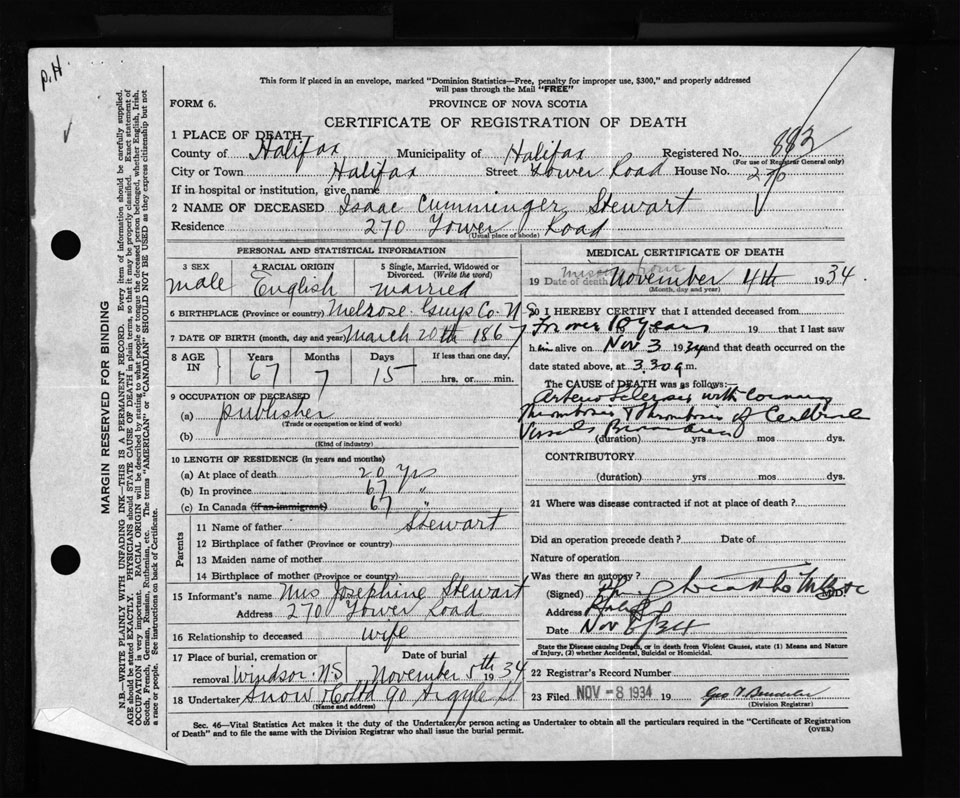 P.H.
This form if placed in an envelope, marked "Dominion Statistics—Free, penalty for improper use, $300," and properly addressed
will pass through the Mail "FREE"
FORM 6.
PROVINCE OF NOVA SCOTIA
CERTIFICATE OF REGISTRATION OF DEATH
1 PLACE OF DEATH
County of Halifax Municipality of Halifax Registered No. 883
(For use of Registrar General only)
City or Town Halifax Street Tower Road House No. 270
If in hospital or institution, give name
2 NAME OF DECEASED Isaac Cumminger Stewart
Residence 270 Tower Road
(Usual place of abode)
PERSONAL AND STATISTICAL INFORMATION
3 SEX 4 RACIAL ORIGIN 5 Single, Married, Widowed or Divorced. (Write the word)
male English married
6 BIRTHPLACE (Province or country) Melrose Guys Co. N.S
7 DATE OF BIRTH (month, day and year) March 20th 1867
8 AGE IN Years Months Days If less than one day,
67 7 15 hrs. or min.
9 OCCUPATION OF DECEASED
(a) publisher
(Trade or occupation or kind of work)
(b)
(Kind of industry)
10 LENGTH OF RESIDENCE (in years and months)
(a) At place of death 20 yrs
(b) In province 67 "
(c) In Canada (if an immigrant) 67 "
Parents
11 Name of father Stewart
12 Birthplace of father (Province or country)
13 Maiden name of mother
14 Birthplace of mother (Province or country)
15 Informant's name Mrs Josephine Stewart
Address 270 Tower Road
16 Relationship to deceased wife
17 Place of burial, cremation or removal Windsor N.S Date of burial November 5th 1934
18 Undertaker Snow & Co Ltd 90 Argyle St
(Name and address)
MEDICAL CERTIFICATE OF DEATH
19 Date of death November 4th 1934
(Month, day and year)
20 I HEREBY CERTIFY that I attended deceased from
For over 18 years 19 that I last saw
him alive on Nov 3 1934 and that death occurred on the
date stated above, at 3.30 a m.
The CAUSE of DEATH was as follows:
Arterio Sclerosis with Coronary
Thrombosis & Thrombosis of Cerebral
Vessels
(duration) yrs mos dys.
CONTRIBUTORY
(duration) yrs mos dys.
21 Where was disease contracted if not at place of death?
Did an operation precede death? Date of
Nature of operation
Was there an autopsy?
(Signed)
Address Halifax
Date Nov 8/34
State the Disease causing Death, or in death from Violent Causes, state (1) Means and Nature
of Injury, (2) whether Accidental, Suicidal or Homicidal.
22 Registrar's Record Number
23 Filed NOV - 8 1934
(Division Registrar)
Sec. 46—Vital Statistics Act makes it the duty of the Undertaker or person acting as Undertaker to obtain all the particulars required in the "Certificate of Registration
of Death" and to file the same with the Division Registrar who shall issue the burial permit.
(OVER)
MARGIN RESERVED FOR BINDING
N.B.—WRITE PLAINLY WITH UNFADING INK—THIS IS A PERMANENT RECORD. Every item of information should be carefully supplied.
AGE should be stated EXACTLY. PHYSICIANS should STATE CAUSE OF DEATH in plain terms, so that it may be properly classified. Exact statement of
OCCUPATION is very important. RACIAL ORIGIN will be described by stating to what people or tongue the deceased person belonged, whether English, Irish,
Scotch, French, German, Russian, Ruthenian, etc. The terms "AMERICAN" or "CANADIAN" SHOULD NOT BE USED as they express citizenship but not
a race or people. See instructions on back of Certificate.